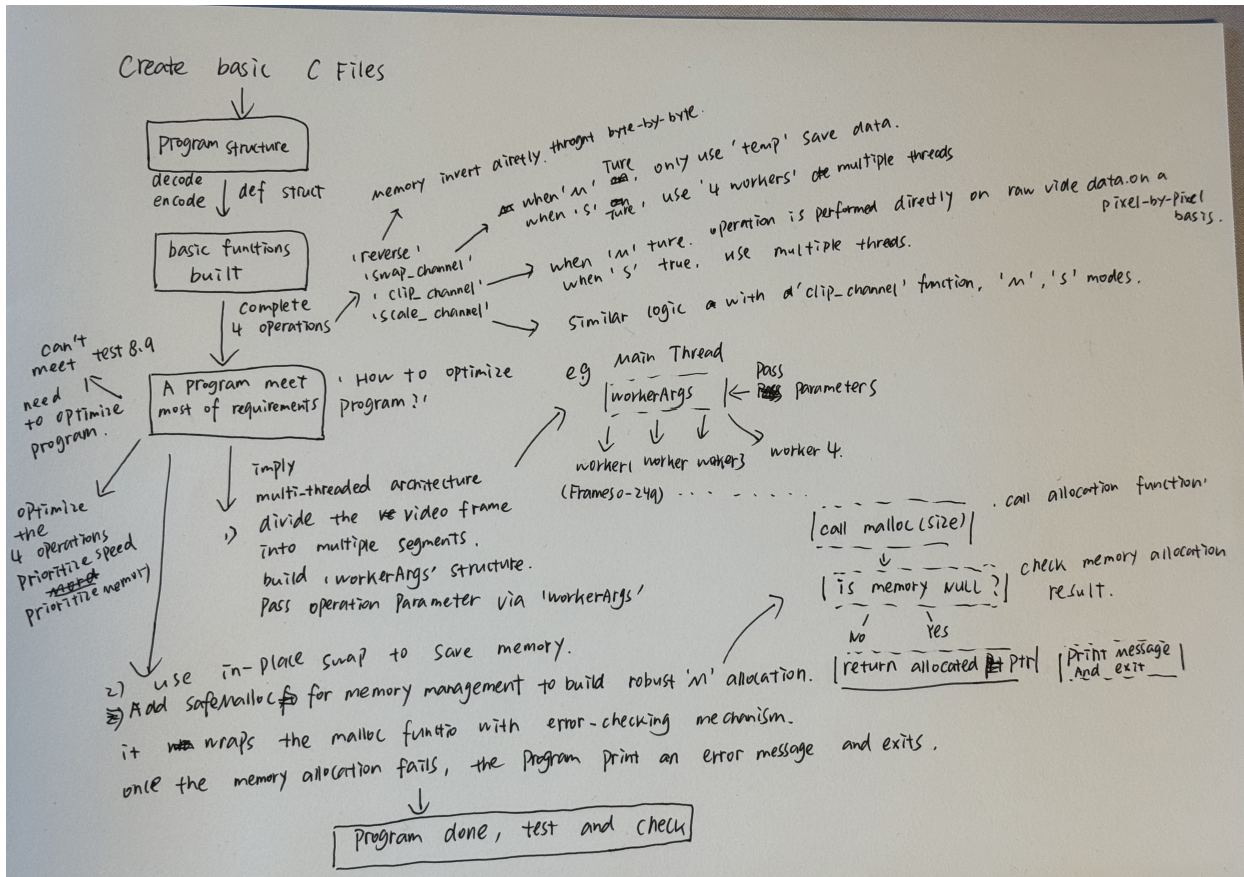 Create basic C Files
Program structure
decode
encode
def struct
basic functions
built
complete
4 operations
'reverse'
'swap_channel'
'clip_channel'
'scale_channel'
memory invert diretly. thrognt byte-by-byte.
when 'M' Ture, only use 'temp' save data.
when 'S' Ture, use '4 workers' multiple threads
when 'M' ture. operation is performed directly on raw vide data.on a
pixel-by-pixel
basis.
when 'S' true, use multiple threds.
Similar logic with 'clip_channel' function, 'M', 'S' modes.
can't
meet test 8.9
need
to optimize
program.
A program meet
most of requirements
'How to optimize
program?'
optimize
the
4 operations
Prioritize speed
Prioritize memory
imply
multi-threaded architecture
1) divide the video frame
into multiple segments.
build 'workerArgs' structure.
Pass operation Parameter via 'workerArgs'
eg
Main Thread
workerArgs
Pass
parameters
worker1 worker woker3 worker 4.
(Frames0-249) . . . . . . . .
call malloc(size)
. call allocation function'
is memory NULL ?
check memory allocation
result.
No Yes
return allocated ptr
print message
And exit
2) use in-place swap to save memory.
Add safeMalloc for memory management to build robust 'M' allocation.
it wraps the malloc functio with error-checking mechanism.
once the memory allocation fails, the Program print an error message and exits.
Program done, test and check